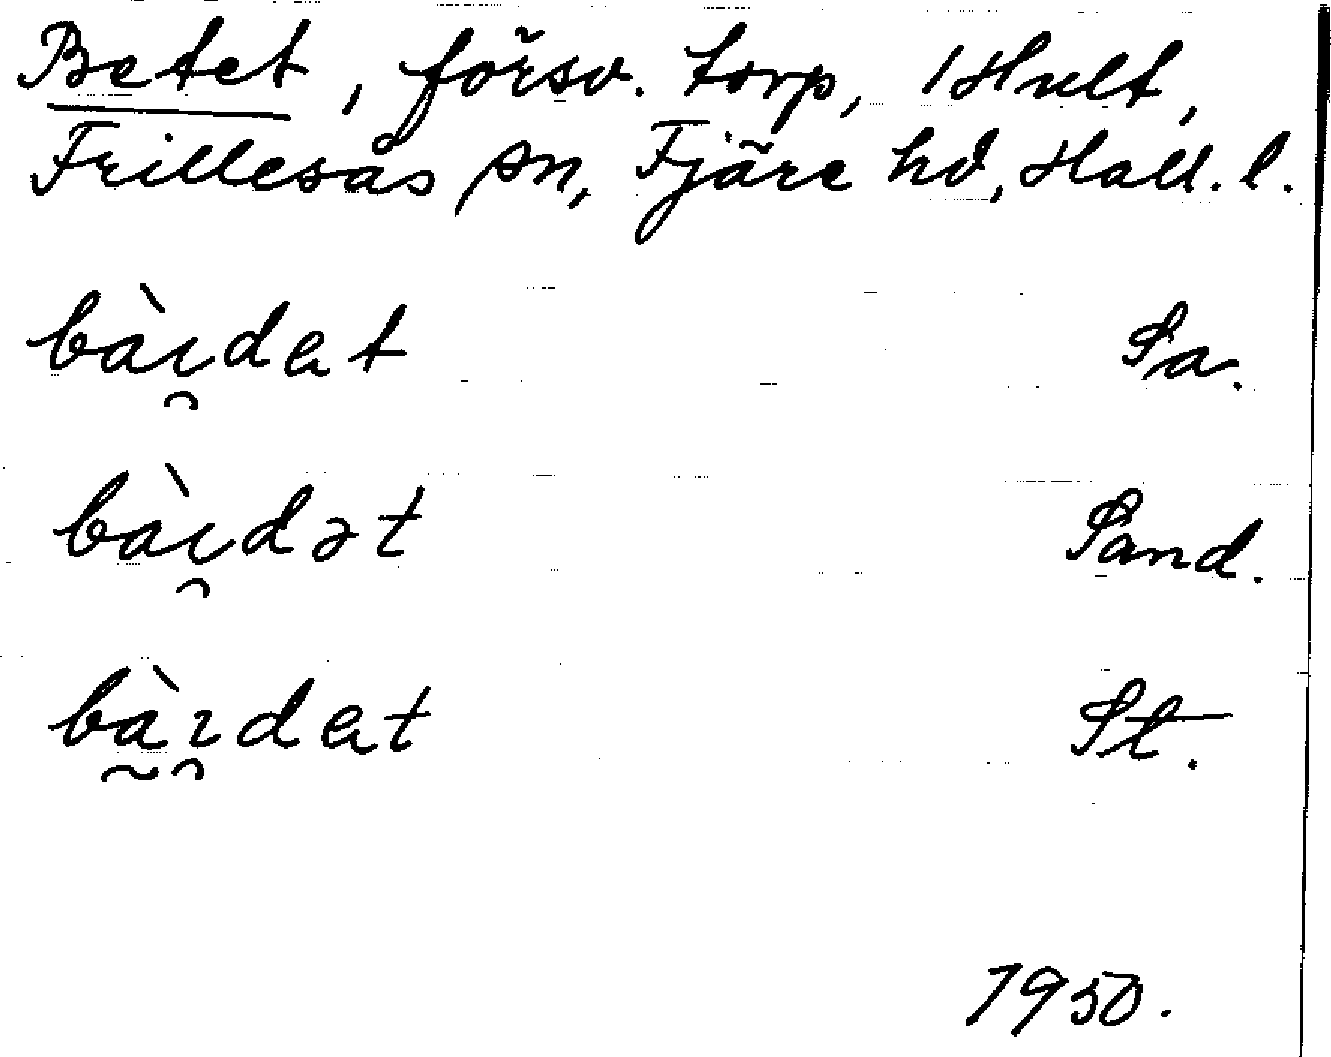 Betet, försv. torp, 1 Hult,
Frillesås sn, Fjäre hd, Hall. l.
bàɩ̯dat Sa.
bàɩ̯dət Sand.
bà̰ɩ̯dat St.
1950.